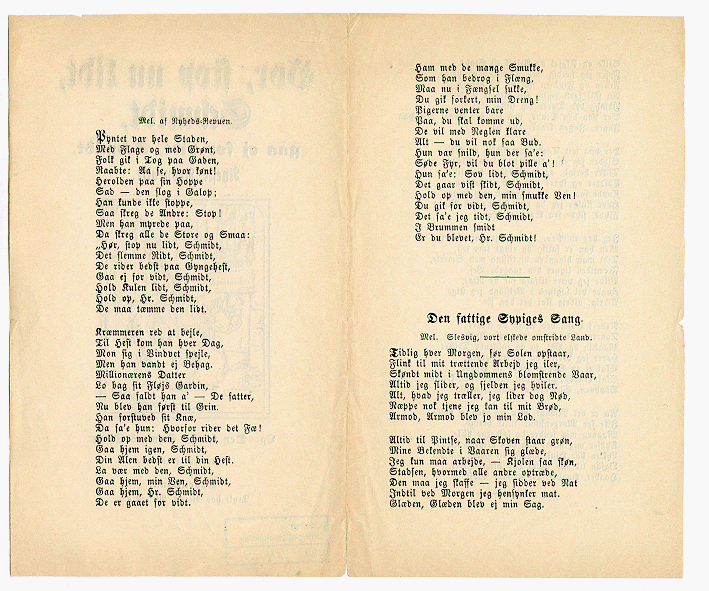 Mel. af Nyheds-Revuen.
Pyntet var hele Staden,
Med Flage og med Grønt,
Folk gik i Tog paa Gaden,
Raabte: Aa se, hvor kønt!
Herolden paa sin Hoppe
Sad — den slog i Galop;
Han kunde ikke stoppe,
Saa skreg de Andre: Stop!
Men han myrede paa,
Da skreg alle de Store og Smaa:
„Hør, stop nu lidt, Schmidt,
Det slemme Ridt, Schmidt,
De rider bedst paa Gyngehest,
Gaa ej for vidt, Schmidt,
Hold Kulen lidt, Schmidt,
Hold op, Hr. Schmidt,
De maa tæmme den lidt.
Kræmmeren red at bejle,
Til Hest kom han hver Dag,
Mon sig i Vinduet spejle,
Men han vandt ej Behag.
Millionærens Datter
Lo bag sit Fløjs Gardin,
— Saa faldt han a' — De fatter,
Nu blev han først til Grin.
Han forstuved sit Knæ,
Da sa'e hun: Hvorfor rider det Fæ!
Hold op med den, Schmidt,
Gaa hjem igen, Schmidt,
Din Alen bedst er til din Hest.
La vær med den, Schmidt,
Gaa hjem, min Ven, Schmidt,
Gaa hjem, Hr. Schmidt,
De er gaaet for vidt.
Ham med de mange Smukke,
Som han bedrog i Flæng,
Maa nu i Fængsel sukke,
Du gik forkert, min Dreng!
Pigerne venter bare
Paa, du skal komme ud,
De vil med Neglen klare
Alt — du vil nok faa Bud.
Hun var snild, hun der sa'e:
Søde Fyr, vil du blot pille a'!
Hun sa'e: Sov lidt, Schmidt,
Det gaar vist skidt, Schmidt,
Hold op med den, min smukke Ven!
Du gik for vidt, Schmidt,
Det sa'e jeg tidt, Schmidt,
I Brummen smidt
Er du blevet, Hr. Schmidt!
Den fattige Sypiges Sang.
Mel. Slesvig, vort elskede omstridte Land.
Tidlig hver Morgen, før Solen opstaar,
Flink til mit trættende Arbejd jeg iler,
Skøndt midt i Ungdommens blomstrende Vaar,
Altid jeg slider, og sjelden jeg hviler.
Alt, hvad jeg træller, jeg lider dog Nød,
Næppe nok tjene jeg kan til mit Brød,
Armod, Armod blev jo min Lod.
Altid til Pintse, naar Skoven staar grøn,
Mine Bekendte i Vaaren sig glæde,
Jeg kun maa arbejde, — Kjolen saa skøn,
Stadsen, hvormed alle andre optræde,
Den maa jeg skaffe — jeg sidder ved Nat
Indtil ved Morgen jeg hensynker mat.
Glæden, Glæden blev ej min Sag.